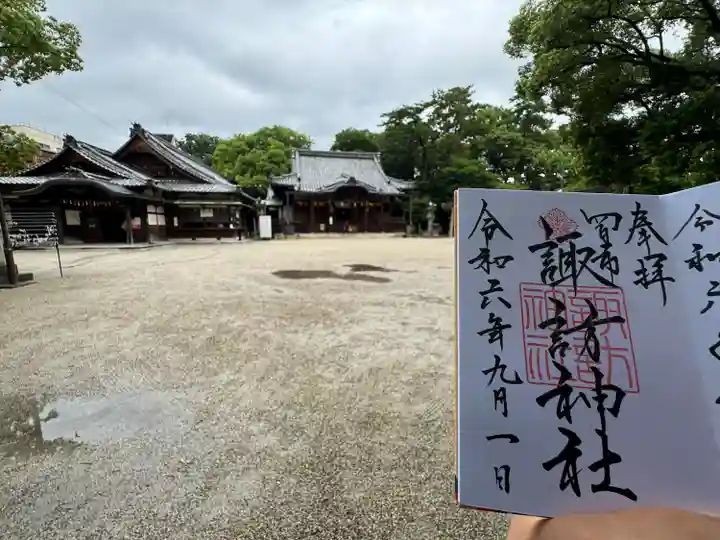 奉拝
四日市
諏訪神社
令和六年九月一日
令和六